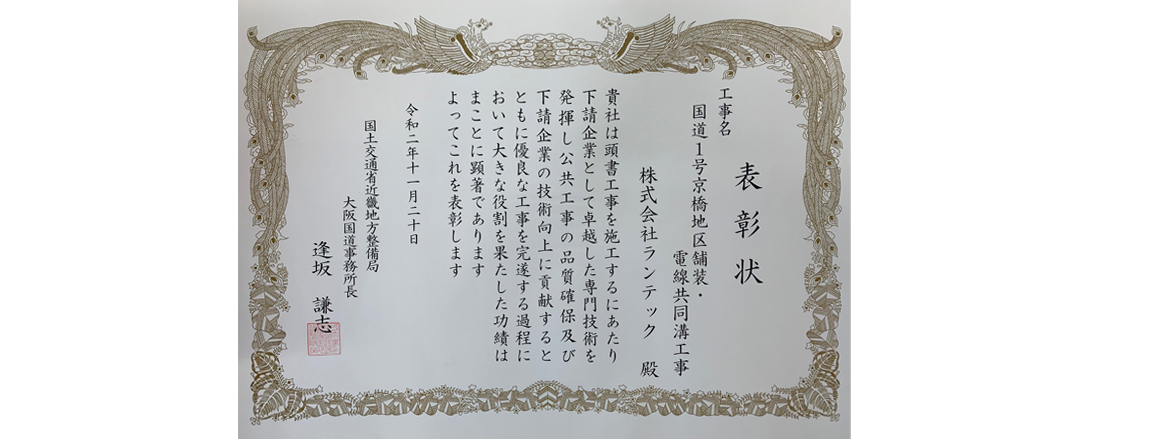 表彰状
工事名
国道1号京橋地区舗装・
電線共同溝工事
株式会社ランテック 殿
貴社は頭書工事を施工するにあたり
下請企業として卓越した専門技術を
発揮し公共工事の品質確保及び
下請企業の技術向上に貢献すると
ともに優良な工事を完遂する過程に
おいて大きな役割を果たした功績は
まことに顕著であります
よってこれを表彰します
令和二年十一月二十日
国土交通省近畿地方整備局
大阪国道事務所長
逢坂 謙志